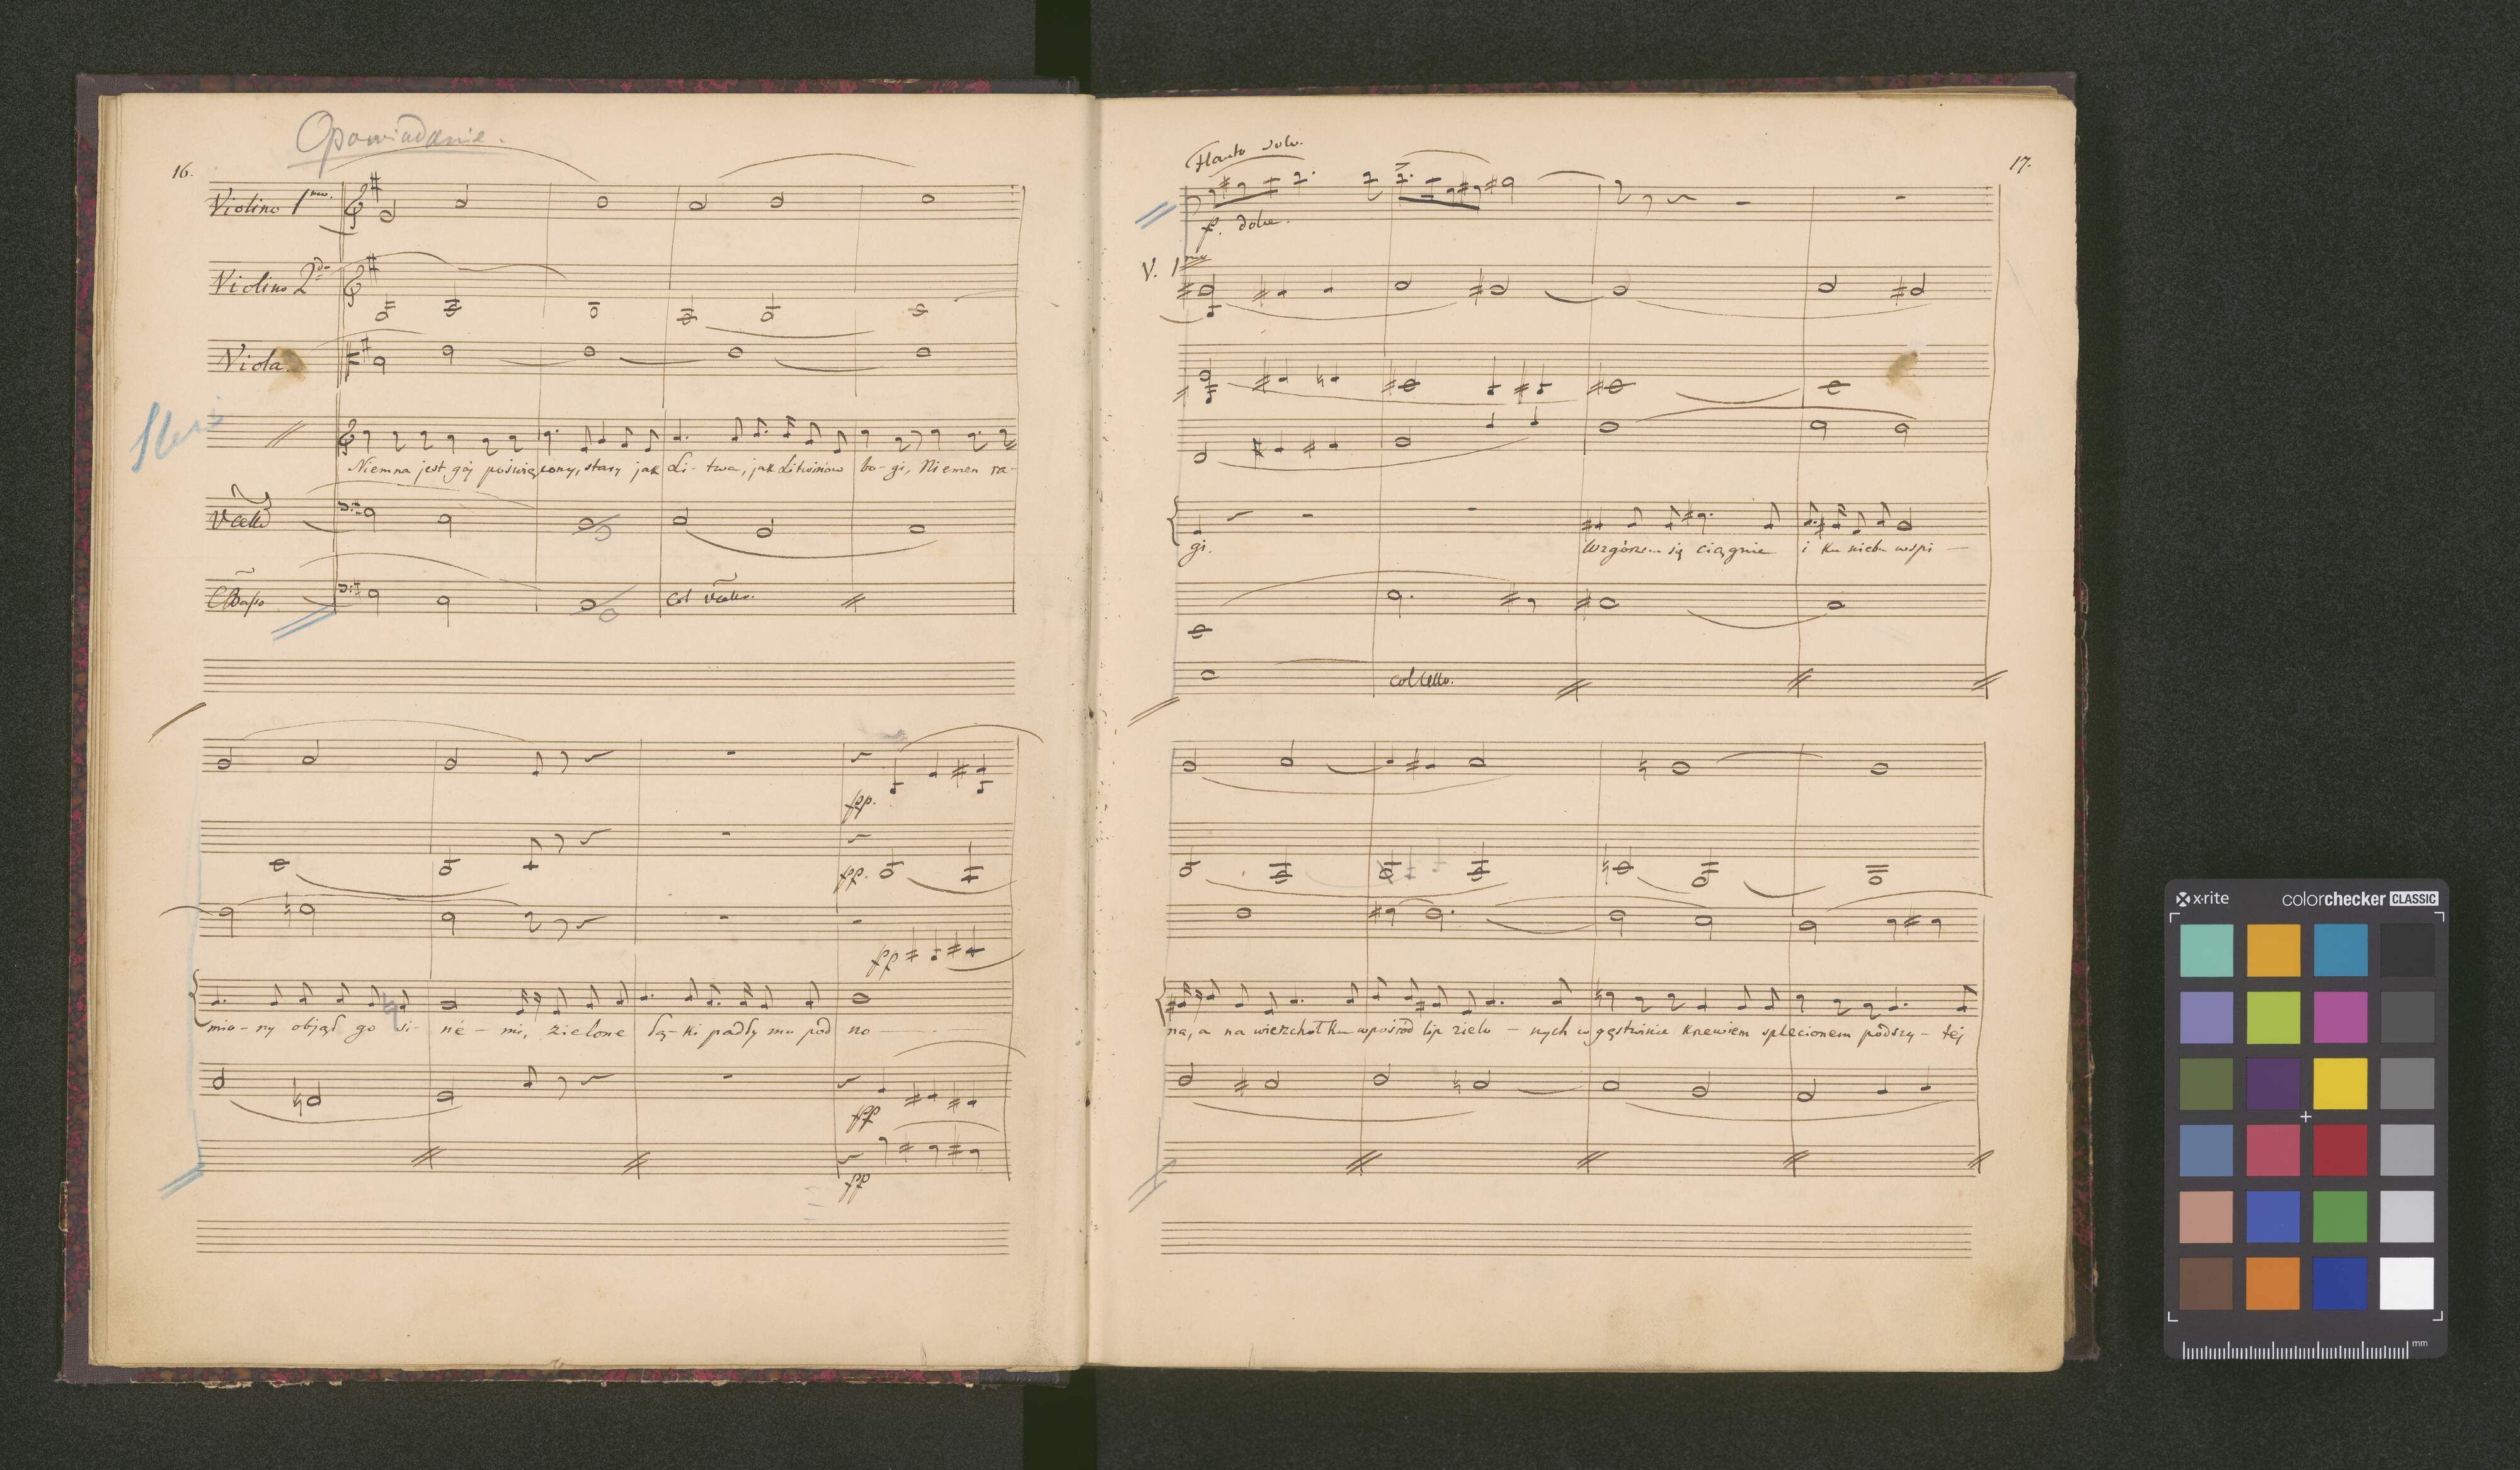 Opowiadanie.
16.
Violino 1mo.
Violino 2do
Viola.
Niemna jest gaj poświęcony, stary jak Li- twa, jak Litwinów bo- gi, Niemen ra-
Vcello
CBasso
col vcello.
fpp.
pp.
pp
mio- ny objął go si- né- mi, zielone łą- ki padły mu pod no
pp
pp
17.
Flauto solo.
f. dolce.
V. 1mo
gi.
Wzgórze się ciągnie i ku niebu wspi
col Cello.
na, a na wierzchołku wpośród lip zielo- nych w gęstwinie krzewiem splecionem podszy- tej
x-rite
colorchecker CLASSIC
mm